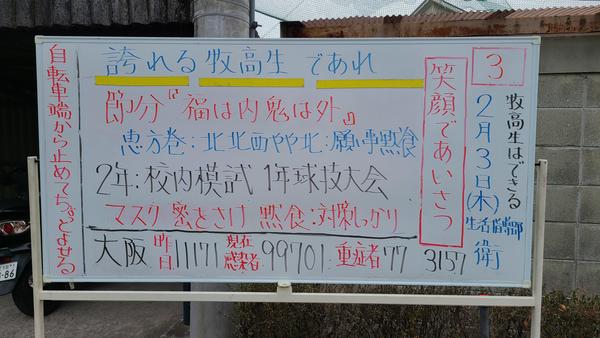 3
牧高生はできる
2月3日(木)
生活指導部
衛
笑顔であいさつ
誇れる牧高生であれ
節分『福は内鬼は外』
恵方巻:北北西やや北:願い事黙食
2年:校内模試 1年球技大会
マスク 密をさけ 黙食:対策しっかり
大阪 昨日11171 現在感染者:99701 重症者77 3157
自転車端から止めてち。とよせる
86